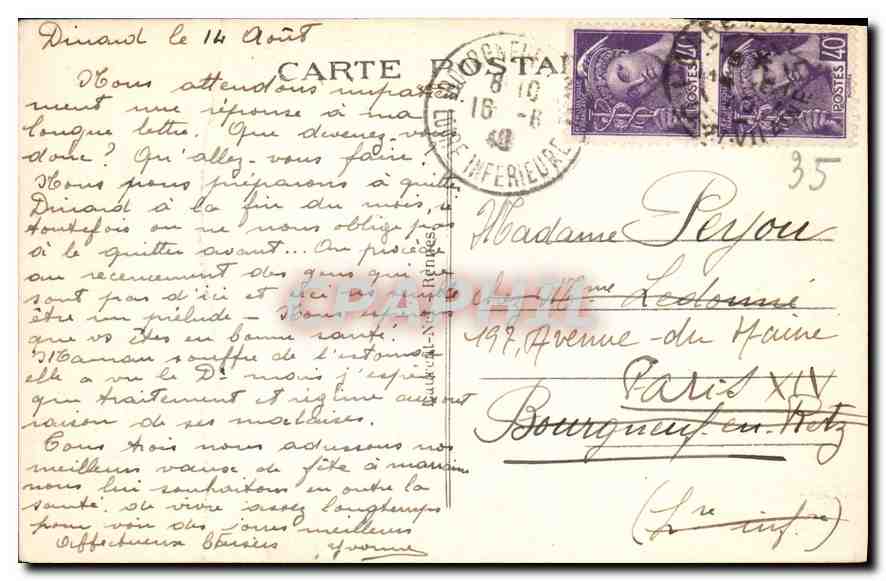 Dinard le 14 Août
CARTE POSTA
Nous attendons impatiem
ment une réponse à ma
longue lettre. Que devenez-vous
donc ? Qu'allez-vous faire ?
Nous nous préparons à quitter
Dinard à la fin du mois, si
toutefois on ne nous oblige pas
à le quitter avant... On procède
au recencement des gens qui ne
sont pas d'ici et ceci semble
être un prélude - Nous
que vs êtes en bonne santé.
Maman souffre de l'estomac
elle a vu le Dr mais j'espère
que traitement et régime auront
raison de ses malaises.
Tous trois nous adressons nos
meilleurs vœux de fête à marraine
nous lui souhaitons en outre la
santé, de vivre assez longtemps
pour voir des jours meilleurs
Affectueux baisers Yvonne
Laurent-Nel, Rennes
8 10
16 -8
40
LOIRE INFERIEURE
POSTES 40
POSTES 40
35
Madame Peyou
Mme Ledonné
197, Avenue-du Maine
Paris XIV
Bourgneuf-en-Retz
(Lre infre)
CPAPHIL